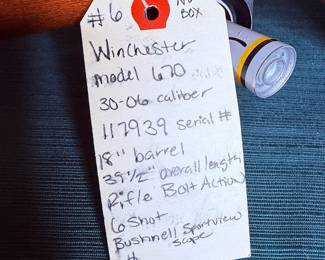 #6 No
BOX
Winchester
model 670
30-06 caliber
117939 serial #
18" barrel
39 1/2" overall length
Rifle Bolt Action
6 Shot
Bushnell Sportview
Scope